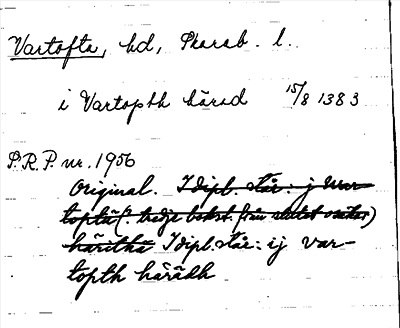 Vartofta, hd, Skarab. l.
i Vartopth härad 15/8 1383
P.R.P. nr. 1956
Original. I dipl. står: j War-
topta (? tredje bokst. från slutet osäker)
häritha I dipl. står: ij Var-
topth härädh